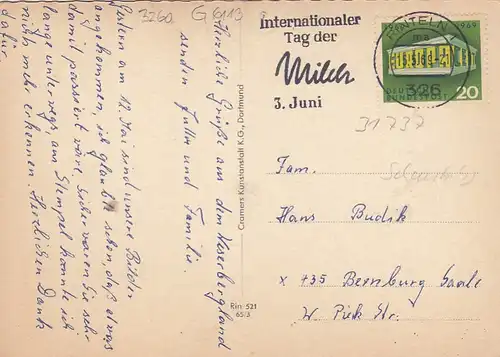 3260
G 6119
Internationaler
Tag der
Milch
3. Juni
RINTELN
326
1969
DEUTSCHE
BUNDESPOST
20
31737
Herzliche Grüße aus dem Weserbergland
senden Fulln und Familie.
Gestern am 12. Mai sind unsere Bilder
angekommen, ich glaubte schon, daß etwas
damit passiert wäre, sie waren sehr
lange unterwegs, am Stempel konnte ich
nichts mehr erkennen. Herzlichen Dank
dafür.
Cramers Kunstanstalt K.G., Dortmund
Rin 521
65/3
Fam.
Hans Budik
x 435 Bernburg Saale
W. Pieck Str.